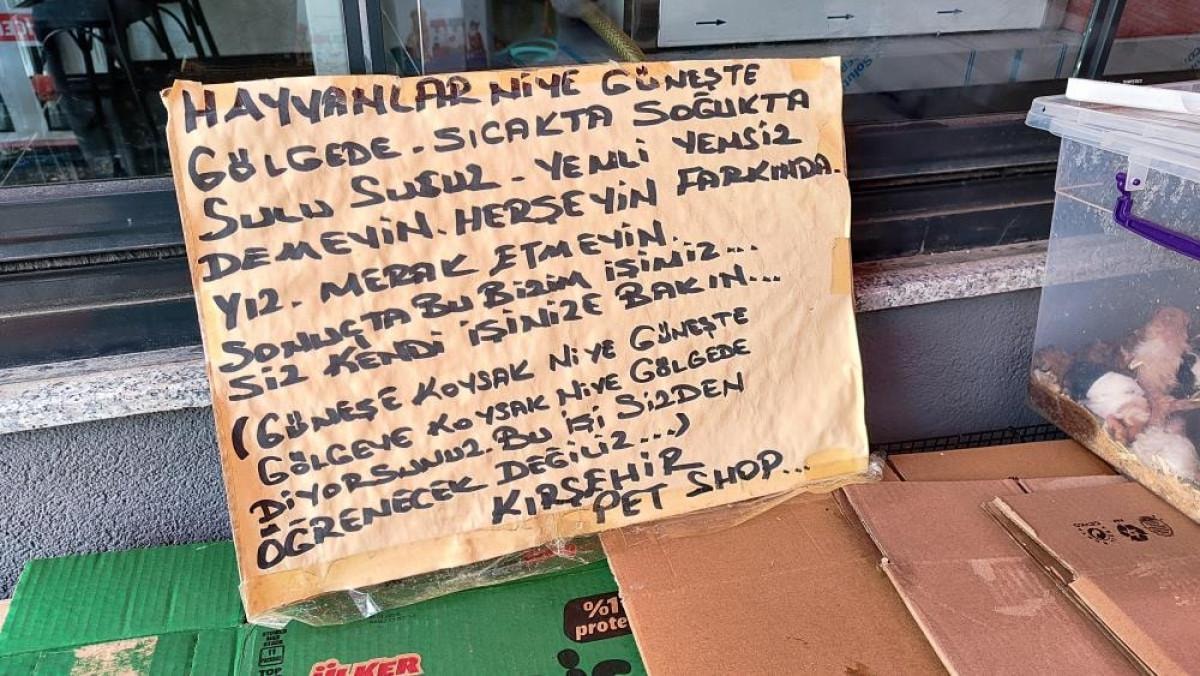 HAYVANLAR NİYE GÜNEŞTE
GÖLGEDE - SICAKTA SOĞUKTA
SULU SUSUZ - YEMLİ YEMSİZ
DEMEYİN. HERŞEYİN FARKINDA.
YIZ. MERAK ETMEYİN.
SONUÇTA BU BİZİM İŞİMİZ...
SİZ KENDİ İŞİNİZE BAKIN...
(GÜNEŞE KOYSAK NİYE GÜNEŞTE
GÖLGEYE KOYSAK NİYE GÖLGEDE
DİYORSUNUZ. BU İŞİ SİZDEN
ÖĞRENECEK DEĞİLİZ...)
KIRŞEHİR
PET SHOP...
%1
prote
ÜLKER
11
TOP